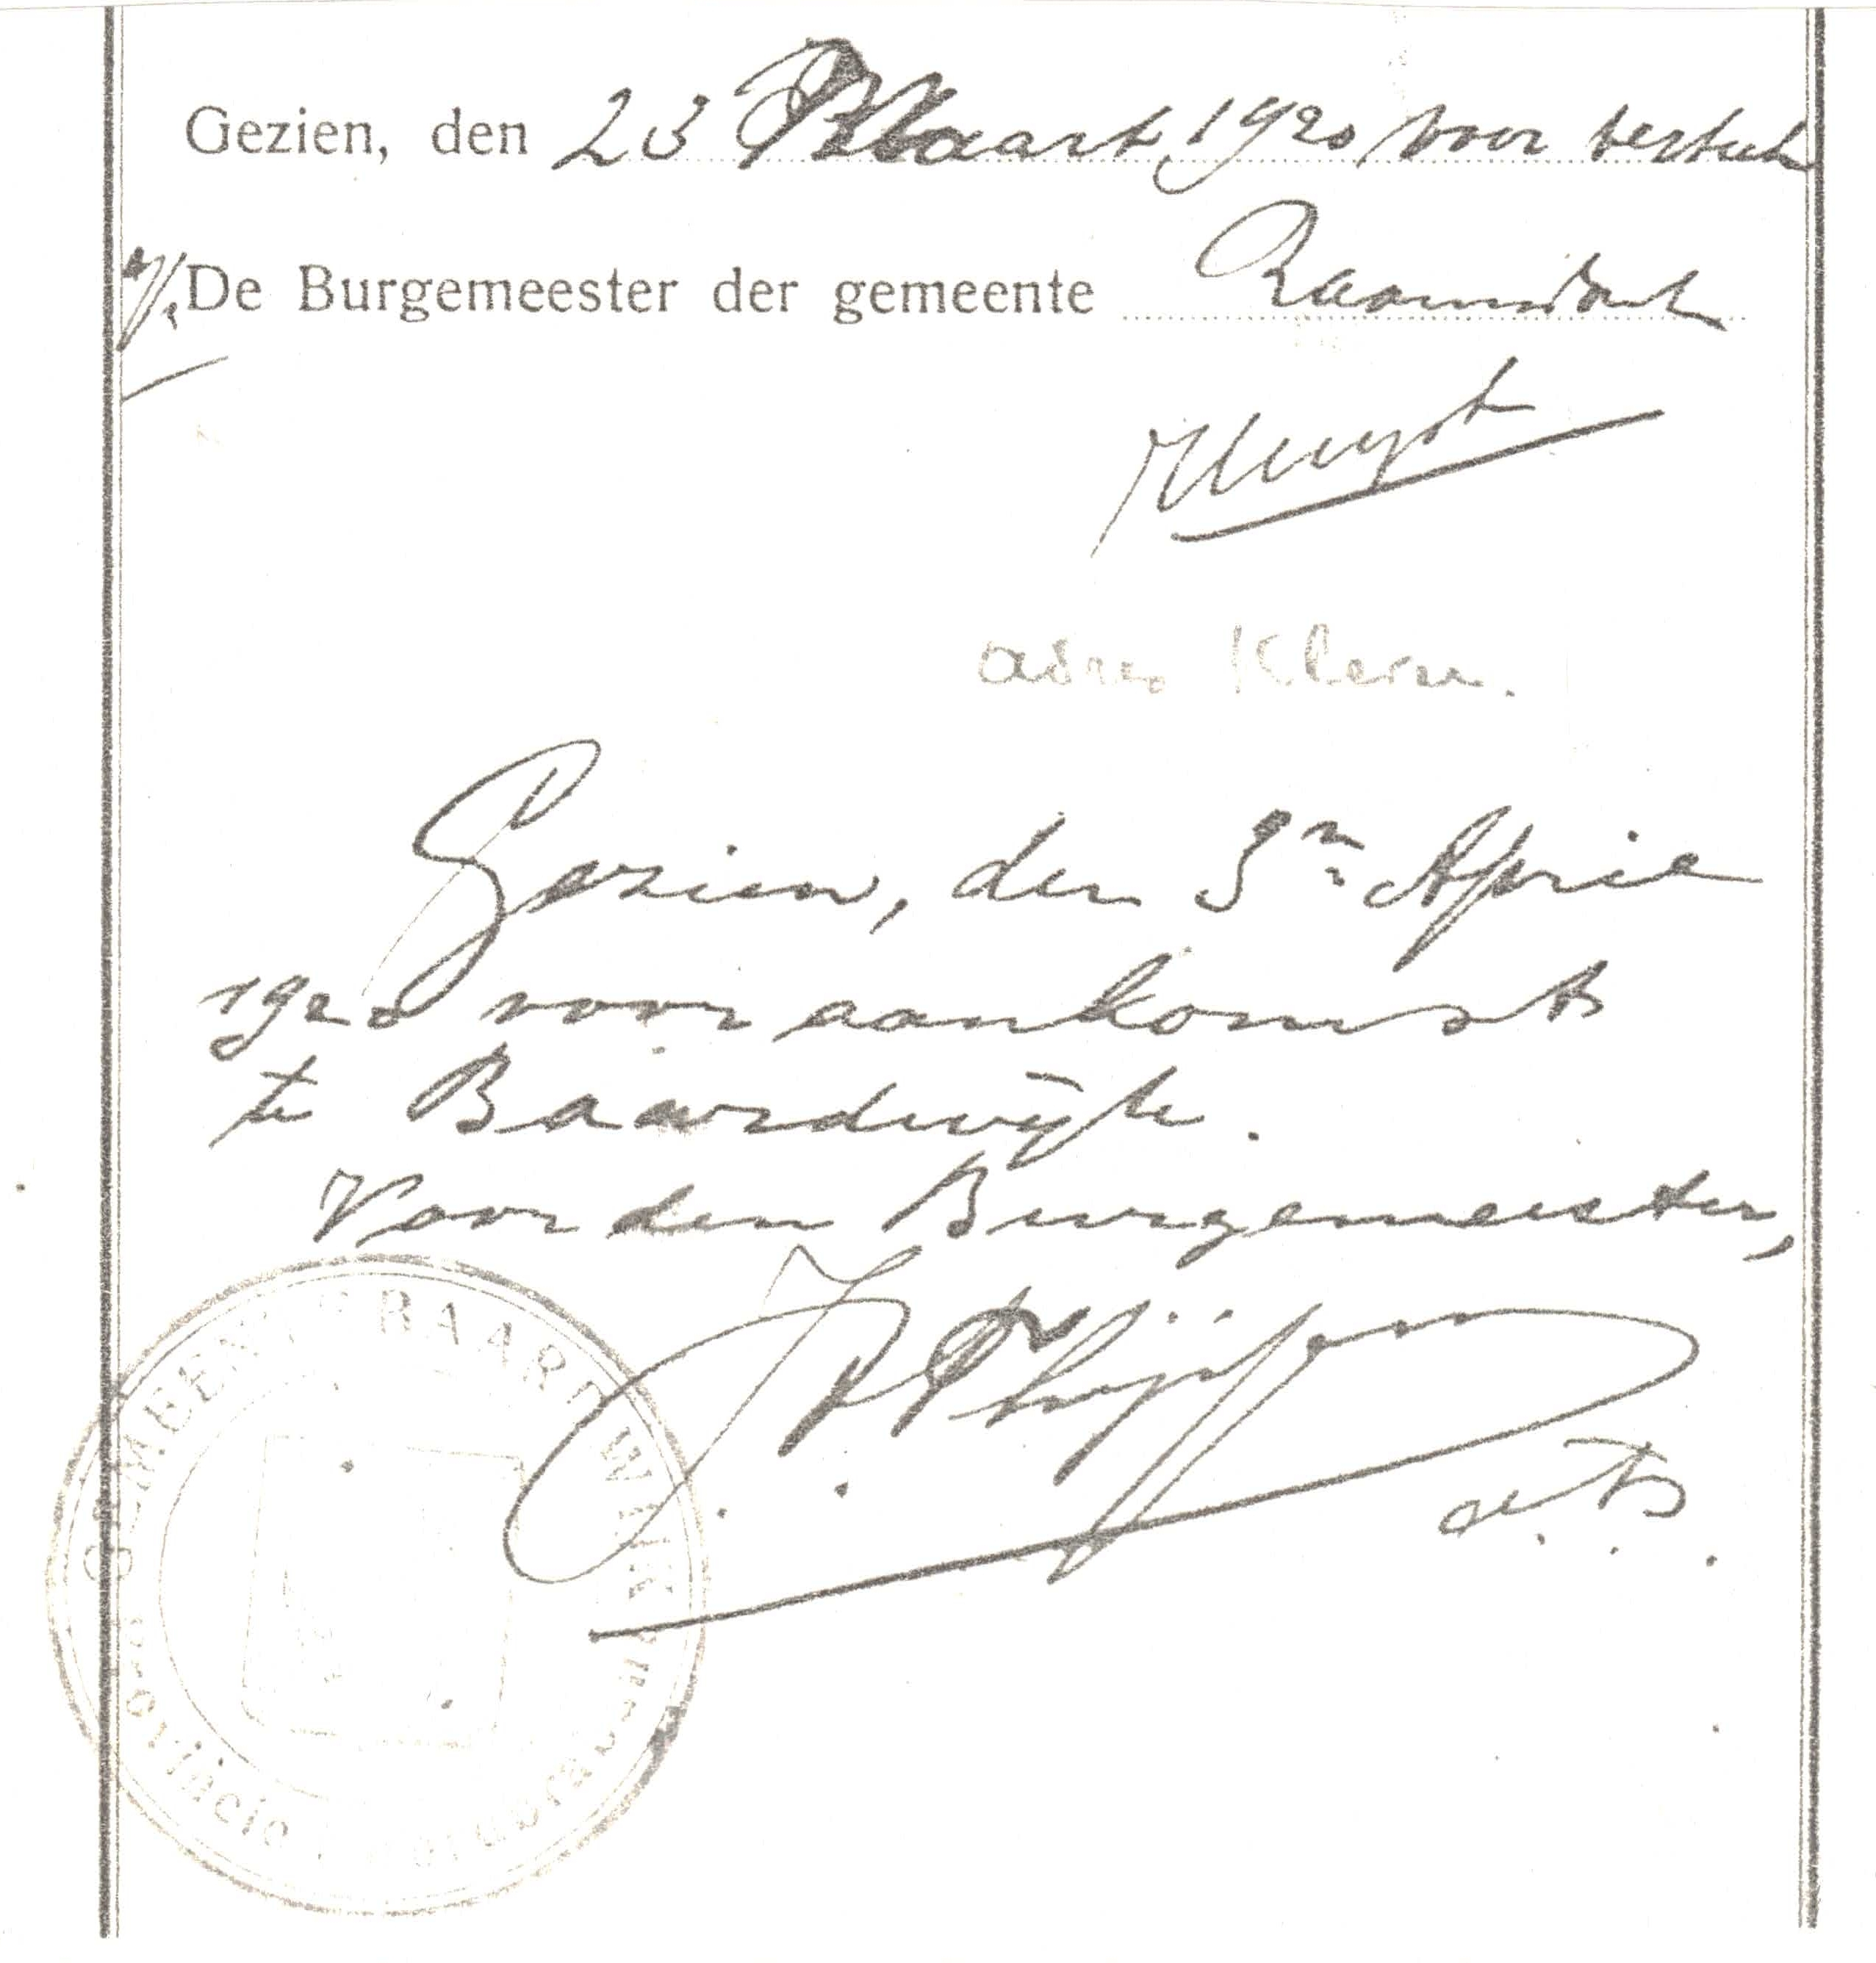 Gezien, den 23 Maart 1920 voor vertrek
De Burgemeester der gemeente Raamsdonk
adres
Gezien, den 9n April
1920 voor aankomst
te Baardwijk.
Voor den Burgemeester,
GEMEENTE BAARDWIJK
Provincie Noordbrabant